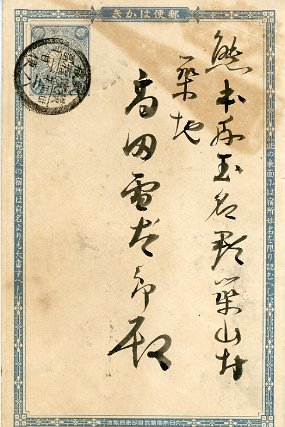 郵便はかき
此の表面には宿所姓名を限り認むへし
熊本縣玉名郡築山村
築地
高田雪太郎殿